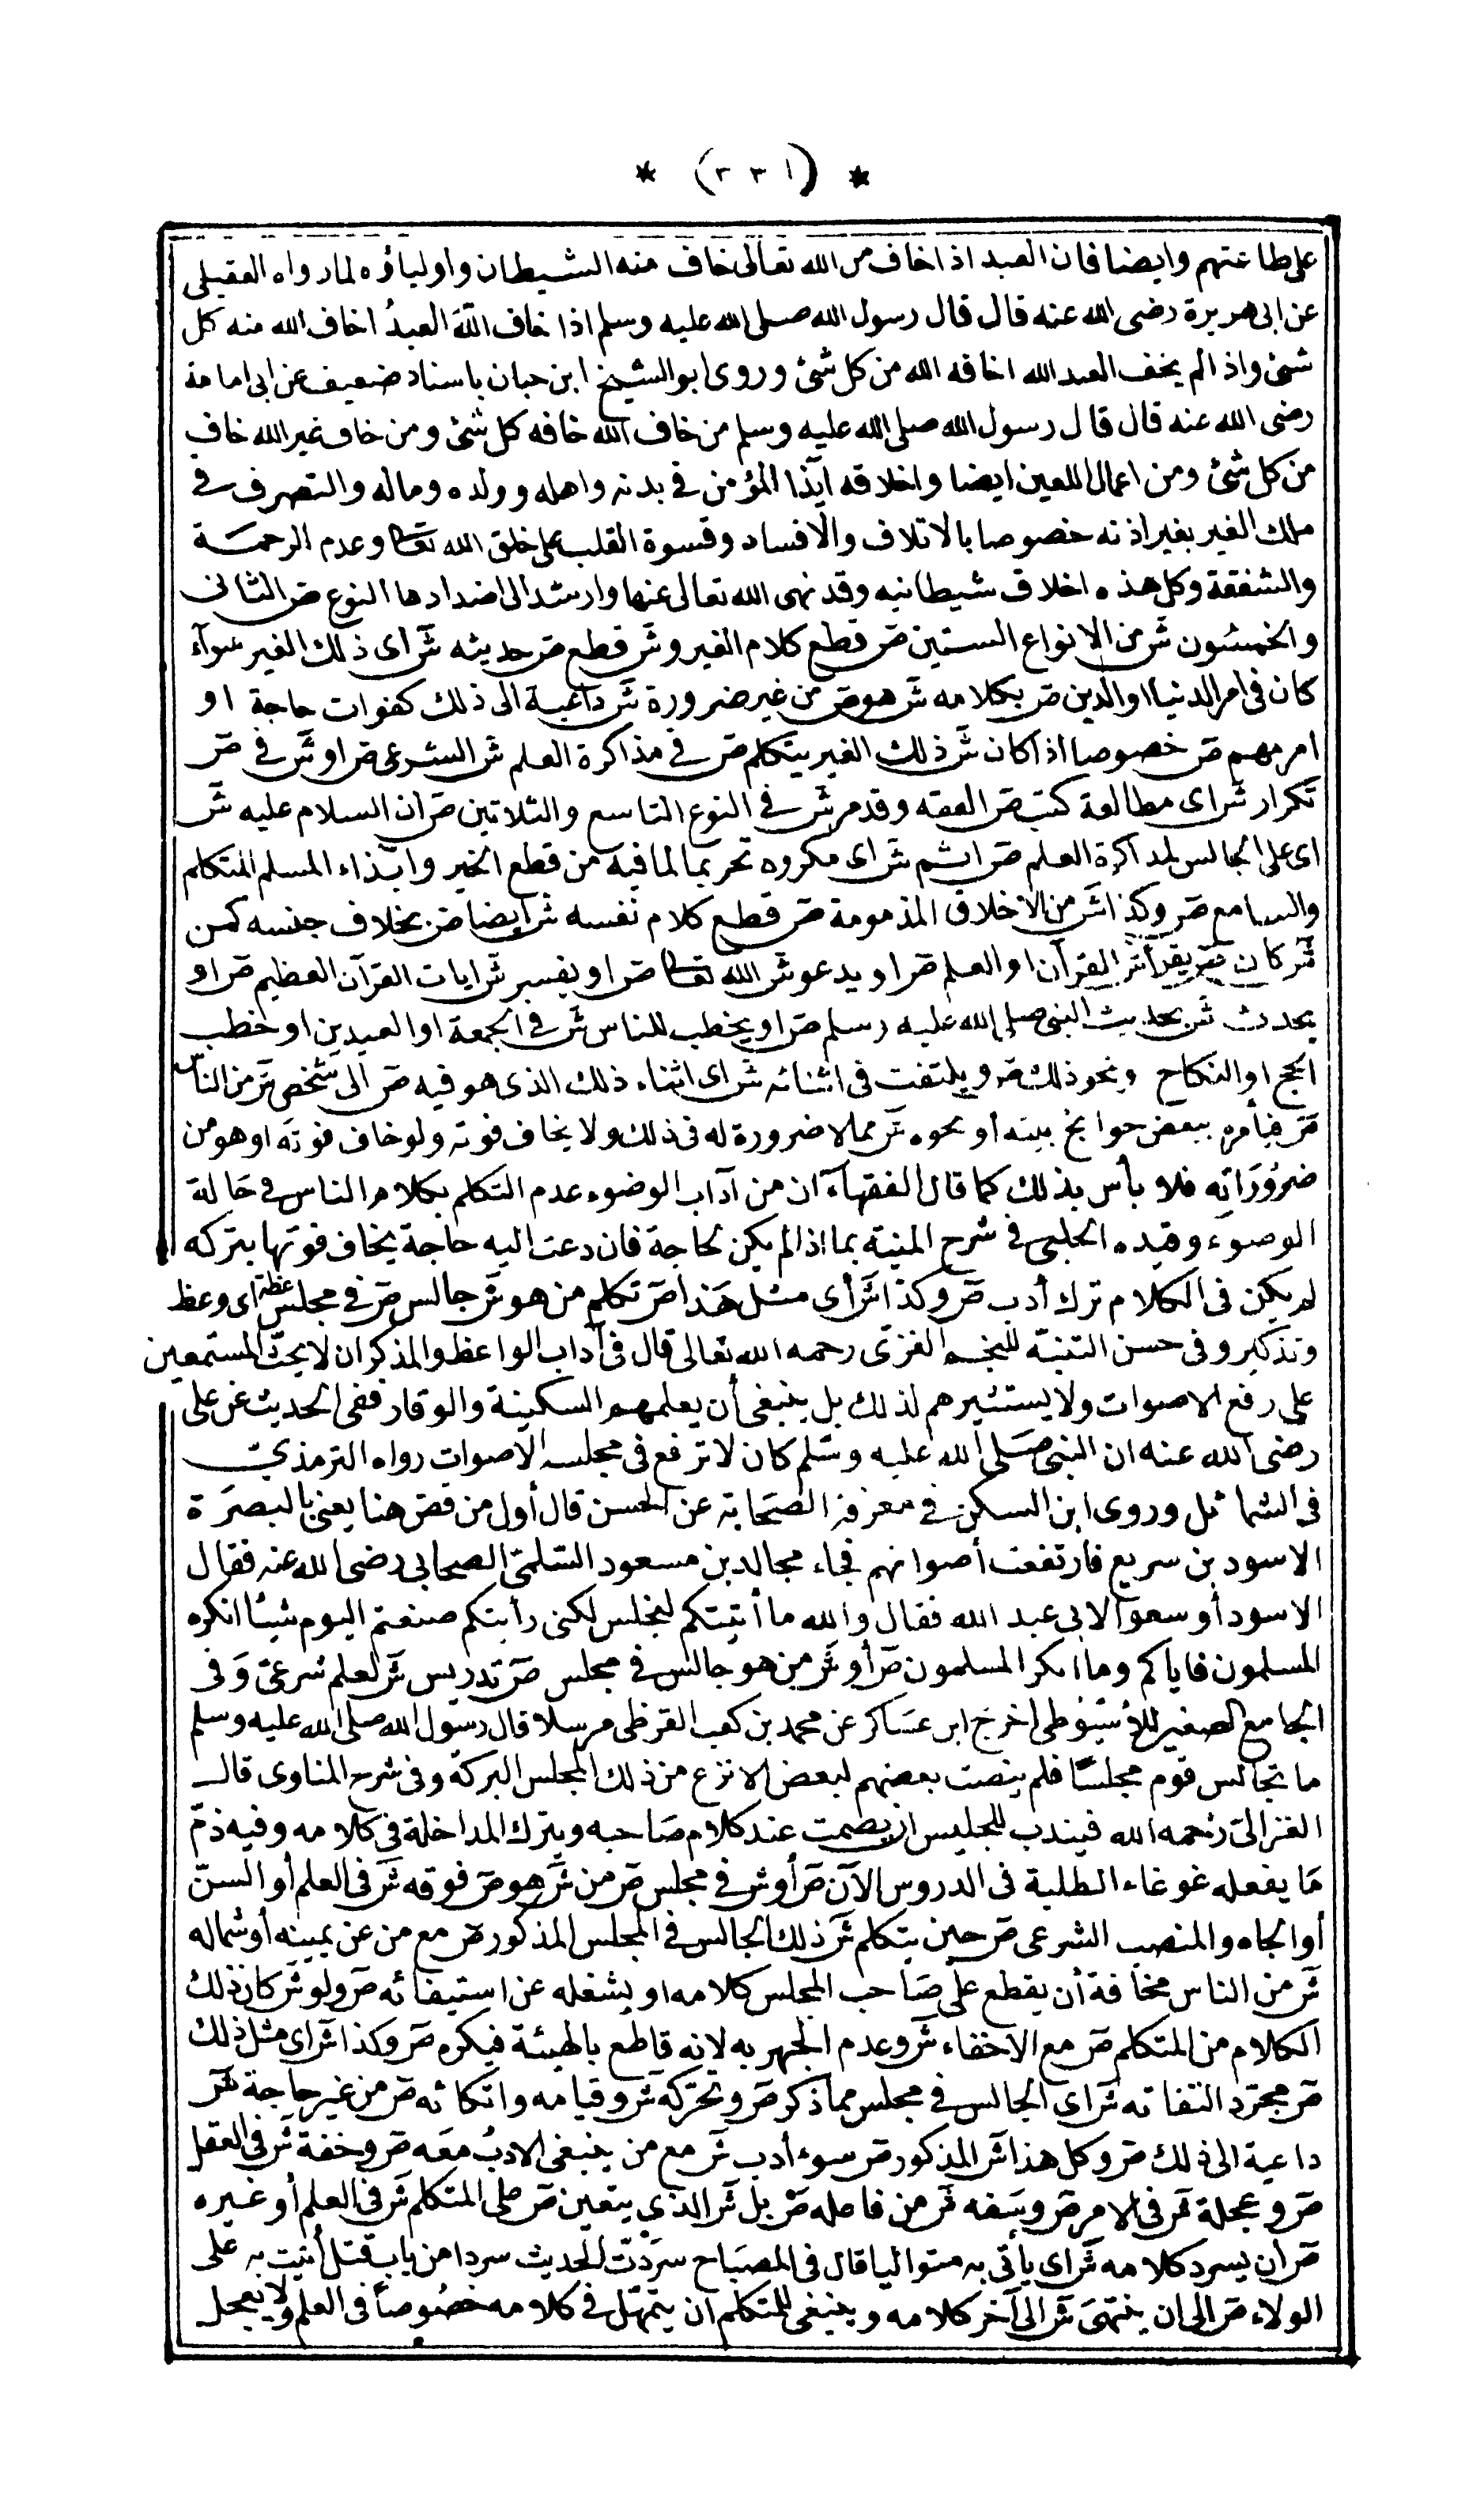 * (٣٣١) *
على طاعتهم وايضا فان العبد اذا خاف من الله تعالى خاف منه الشيطان واولياؤه لما رواه العقيلى
عن ابى هريرة رضى الله عنه قال قال رسول الله صلى الله عليه وسلم اذا خاف اللهَ العبدُ اخاف الله منه كل
شئ واذا لم يخف العبد الله اخافه الله من كل شئ وروى ابو الشيخ ابن حبان باسناد ضعيف عن ابى امامة
رضى الله عنه قال قال رسول الله صلى الله عليه وسلم من خاف الله خافه كل شئ ومن خاف غير الله خاف
من كل شئ ومن اعمال اللعين ايضا واخلاقه ايذا المؤمن فى بدنه واهله وولده وماله والتصرف فى
ملك الغير بغير اذنه خصوصا بالاتلاف والافساد وقسوة القلب على خلق الله تعا وعدم الرحمة
والشفقة وكل هذه اخلاق شيطانيه وقد نهى الله تعالى عنها وارشد الى اضدادها النوع ص الثانى
والخمسون ش من الانواع الستين ص قطع كلام الغير و ش قطع ص حديثه ش اى ذلك الغير سوآء
كان فى امر الدنيا او الدين ص بكلامه ش هو ص من غير ضرورة ش داعية الى ذلك كفوات حاجة او
امر مهم ص خصوصا اذا كان ش ذلك الغير يتكلم ص فى مذاكرة العلم ش الشرعى ص او ش فى ص
تكرار ش اى مطالعة كتب ص الفقه وقد مر ش فى النوع التاسع والثلاثين ص ان السلام عليه ش
اى على الجالس لمذاكرة العلم ص اثم ش اى مكروه تحريما لما فيه من قطع الخير وايذاء المسلم المتكلم
والسامع ص وكذا ش من الاخلاق المذمومة ص قطع كلام نفسه ش ايضا ص بخلاف جنسه كمن
ش كان ص يقرأ ش القرآن او العلم ص او يدعو ش الله تعا ص او يفسر ش ايات القرآن العظيم ص او
يحدث ش بحديث النبى صلى الله عليه وسلم ص او يخطب للناس ش فى الجمعة او العيدين او خطب
الحج او النكاح ونحو ذلك ص ويلتفت فى اثنائه ش اى اثناء ذلك الذى هو فيه ص الى شخص ش من الناس
ص فيأمره ببعض حوايج بيته أو نحوه ش مما لا ضرورة له فى ذلك ولا يخاف فوته ولو خاف فوته او هو من
ضروراته فلا بأس بذلك كما قال الفقهاء ان من آداب الوضوء عدم التكلم بكلام الناس فى حالة
الوضوء وقيده الحلبى فى شرح المنية بما اذا لم يكن لحاجة فان دعت اليه حاجة يخاف فوتها بتركه
لم يكن فى الكلام ترك أدب ص وكذا ش أى مثل هذا ص تكلم من هو ش جالس ص فى مجلس عظة اى وعظ
وتذكير وفى حسن التنبه للنجم الغزى رحمه الله تعالى قال فى آداب الواعظ والمذكر ان لا يحث المستمعين
على رفع الاصوات ولا يستثيرهم لذلك بل ينبغى أن يعلمهم السكينة والوقار ففى الحديث عن على
رضى الله عنه ان النبى صلى الله عليه وسلم كان لا ترفع فى مجلسه الاصوات رواه الترمذى
فى الشمائل وروى ابن السكن فى معرفة الصحابة عن الحسن قال أول من قص هنا يعنى بالبصرة
الاسود بن سريع فارتفعت أصواتهم فجاء مجالد بن مسعود السّلمى الصحابى رضى الله عنه فقال
الاسود أوسعوا لابى عبد الله فقال والله ما أتيتكم لنجلس لكنى رأيتكم صنعتم اليوم شيئا انكره
المسلمون فاياكم وما انكر المسلمون ص أو ش من هو جالس فى مجلس ص تدريس ش لعلم شرعى وفى
الجامع الصغير للأسيوطى اخرج ابن عساكر عن محمد بن كعب القرظى مرسلا قال رسول الله صلى الله عليه وسلم
ما تجالس قوم مجلسًا فلم ينصت بعضهم لبعض الا نزع من ذلك المجلس البركة وفى شرح المناوى قال
الغزالى رحمه الله فيندب للجليس ان يصمت عند كلام صاحبه ويترك المداخلة فى كلامه وفيه ذمّ
ما يفعله غوغاء الطلبة فى الدروس الآن ص أو ش فى مجلس ص من ش هو ص فوقه ش فى العلم أو السنّ
أو الجاه والمنصب الشرعى ص حين يتكلم ش ذلك الجالس فى المجلس المذكور ص مع من عن يمينه أو شماله
ش من الناس مخافة أن يقطع على صاحب المجلس كلامه او يشغله عن استيفائه ص ولو ش كان ذلك
الكلام من المتكلم ص مع الاخفاء ش وعدم الجهر به لانه قاطع بالهيئة فيكره ص وكذا ش اى مثل ذلك
ص مجرد التفاته ش اى الجالس فى مجلس مما ذكر ص وتحركه ش وقيامه واتكائه ص من غير حاجة ش
داعية الى ذلك ص وكل هذا ش المذكور ص سوء أدب ش مع من ينبغى الادب معه ص وخفة ش فى العقل
ص وعجلة ش فى الامر ص وسفه ش من فاعله ص بل ش الذى يتعين ص على المتكلم ش فى العلم أو غيره
ص أن يسرد كلامه ش اى يأتى به متواليا قال فى المصباح سردت الحديث سردا من باب قتل أتيت به على
الولاء ص الى ان ينتهى ش الى آخر كلامه وينبغى للمتكلم ان يتمهّل فى كلامه خصوصاً فى العلم ولا يعجل